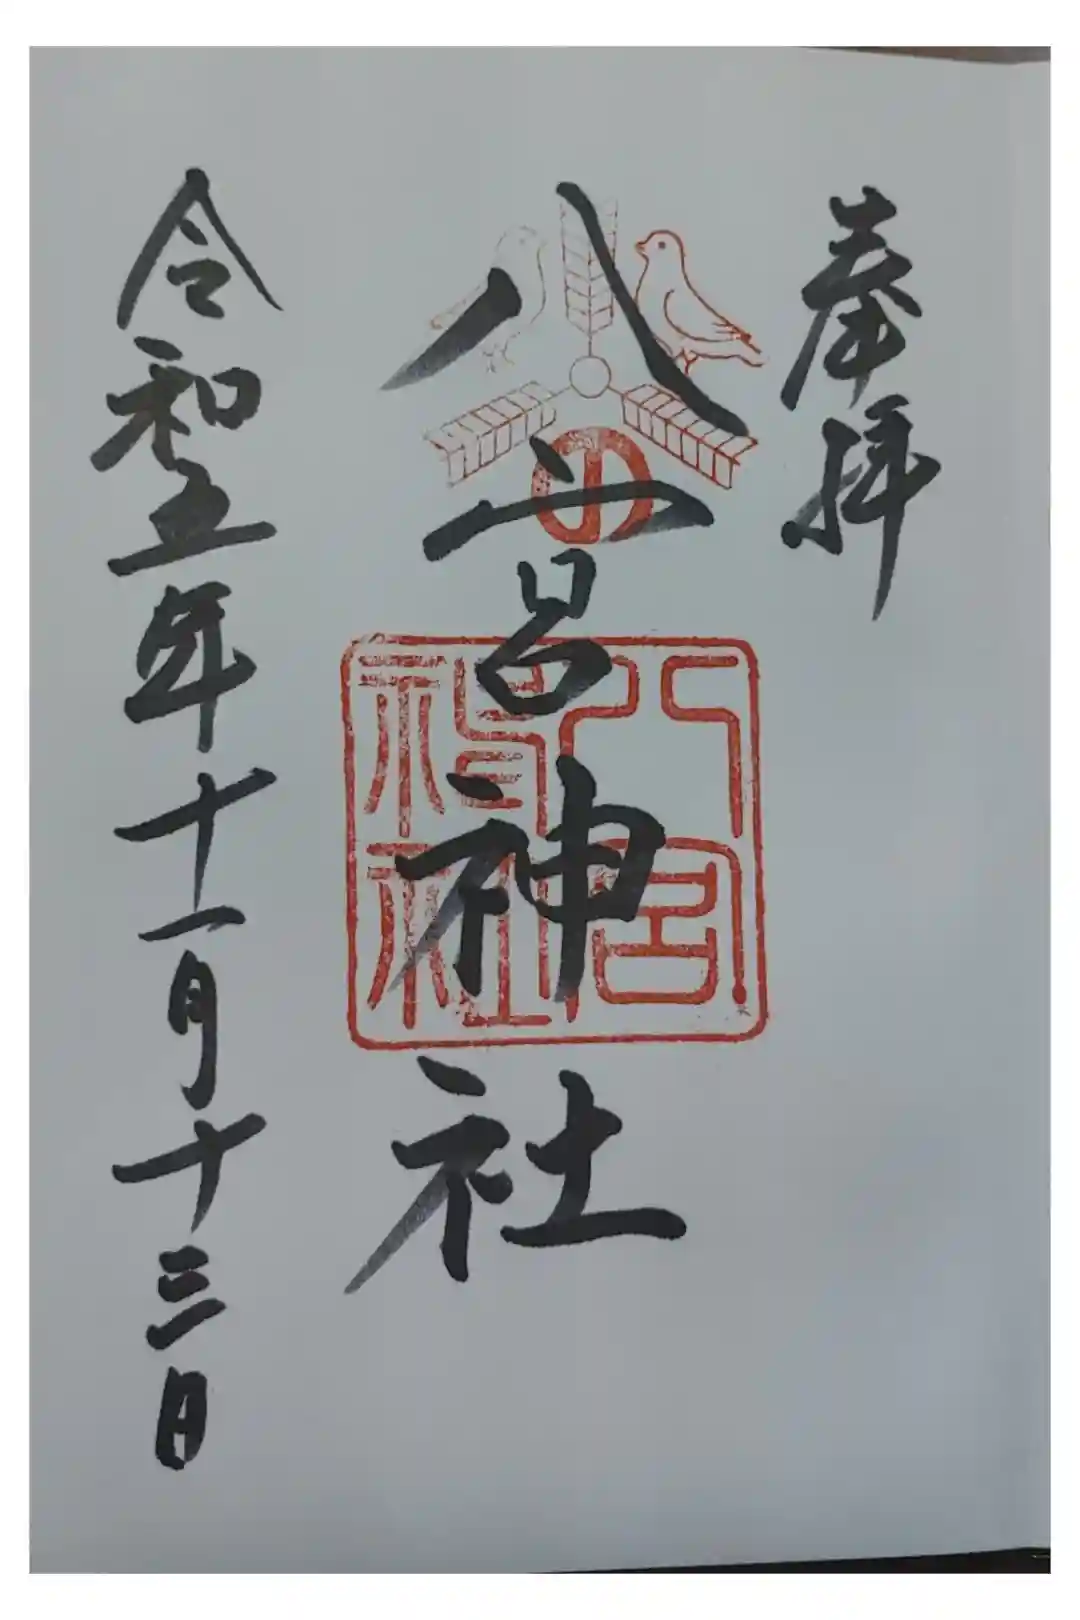 奉拝
八宮神社
八宮神社
令和五年十一月十三日